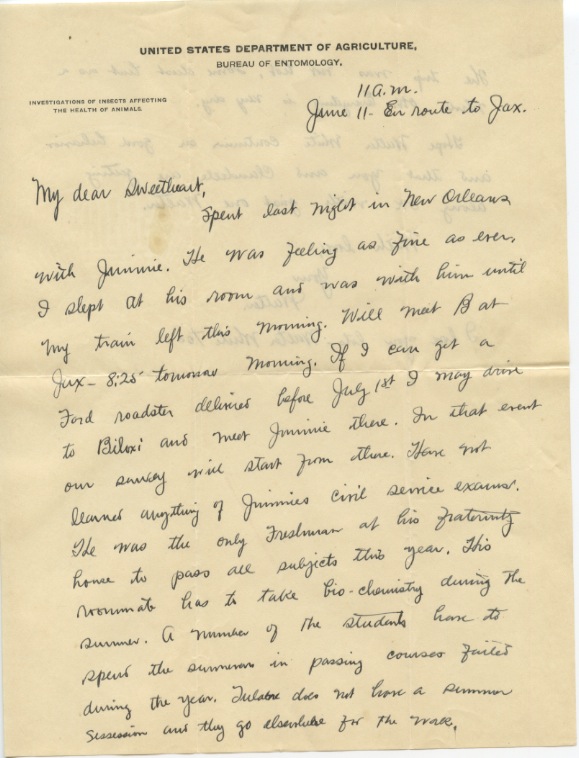 UNITED STATES DEPARTMENT OF AGRICULTURE,
BUREAU OF ENTOMOLOGY.
INVESTIGATIONS OF INSECTS AFFECTING
THE HEALTH OF ANIMALS
11 a.m.
June 11 - En route to Jax.
My dear Sweetheart,
Spent last night in New Orleans
with Jimmie. He was feeling as fine as ever.
I slept at his room and was with him until
my train left this morning. Will meet B at
Jax - 8:25 tomorrow morning. If I can get a
Ford roadster delivered before July 1st I may drive
to Biloxi and meet Jimmie there. In that event
our survey will start from there. Have not
learned anything of Jimmies civil service exams.
He was the only Freshman at his fraternity
house to pass all subjects this year. His
roommate has to take bio-chemistry during the
summer. A number of the students have to
spend the summers in passing courses failed
during the year. Tulane does not have a summer
Sissession and they go elsewhere for the work.